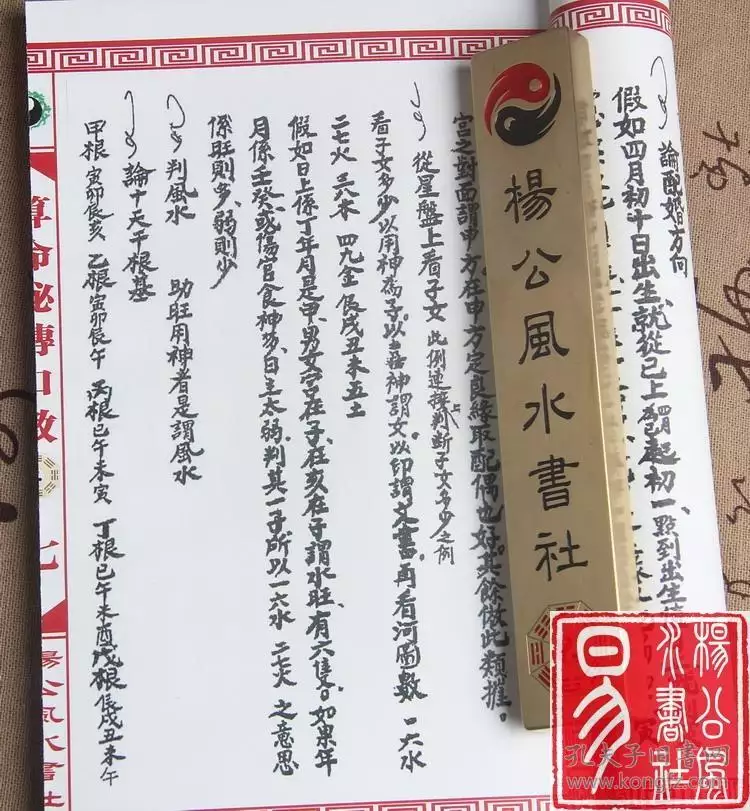 論配婚方向
假如四月初十日出生、就從巳上起初一、點到出生
宮之對面謂申方、在申方定良緣取配偶也好。其餘倣此類推。
從星盤上看子女 此例連接上判斷子女多少之例
看子女多少以用神為子。以喜神謂女。以印謂文書。再看河圖數 一六水
二七火 三八木 四九金 辰戌丑未五土
假如日上係丁年月是甲、男女宮在子、在亥在子謂水旺、有六隻。如果年
月係壬癸、或傷官食神等、日主太弱、判其一子所以一六水 二七火 之意思
係旺則多、弱則少
判風水 助旺用神者是謂風水
論十天干根基
甲根 寅卯辰亥 乙根 寅卯辰午 丙根 巳午未寅 丁根 巳午未酉 戊根 辰戌丑未午
算命秘傳口教
七
楊公風水書社
楊公風水書社
楊公風水書社
易
孔夫子旧书网
www.kongfz.com